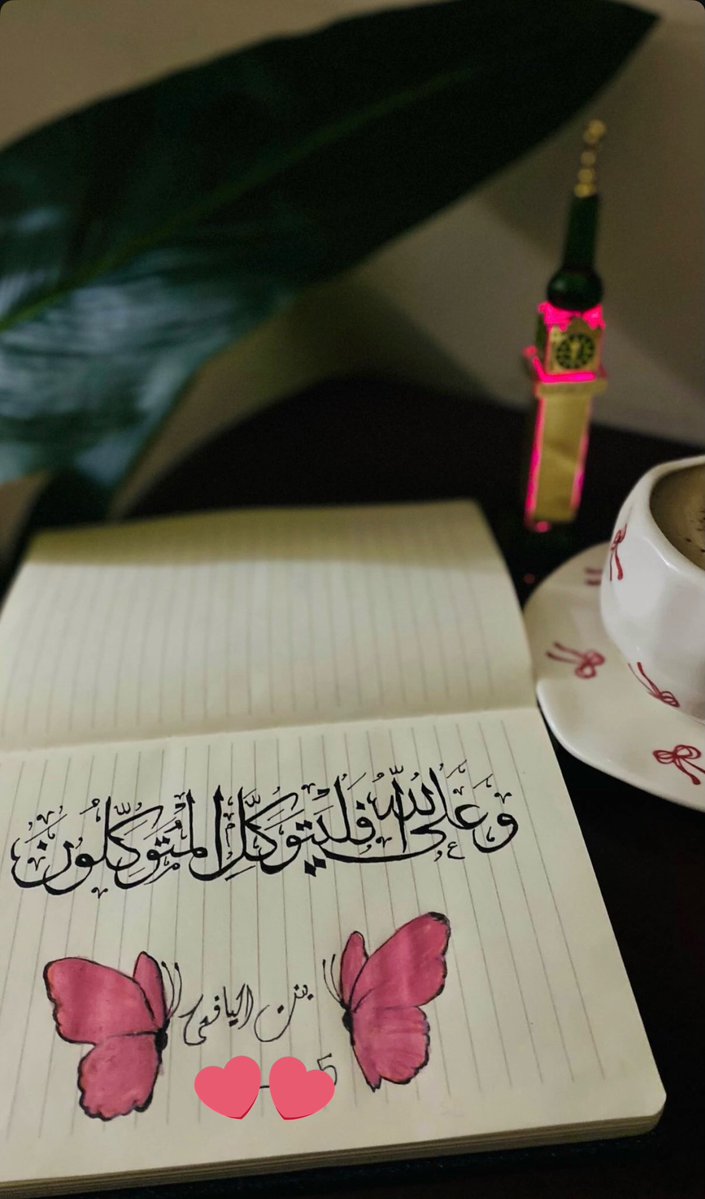 وَعَلَى اللَّهِ فَلْيَتَوَكَّلِ الْمُتَوَكِّلُونَ
بنت اليافعي
5